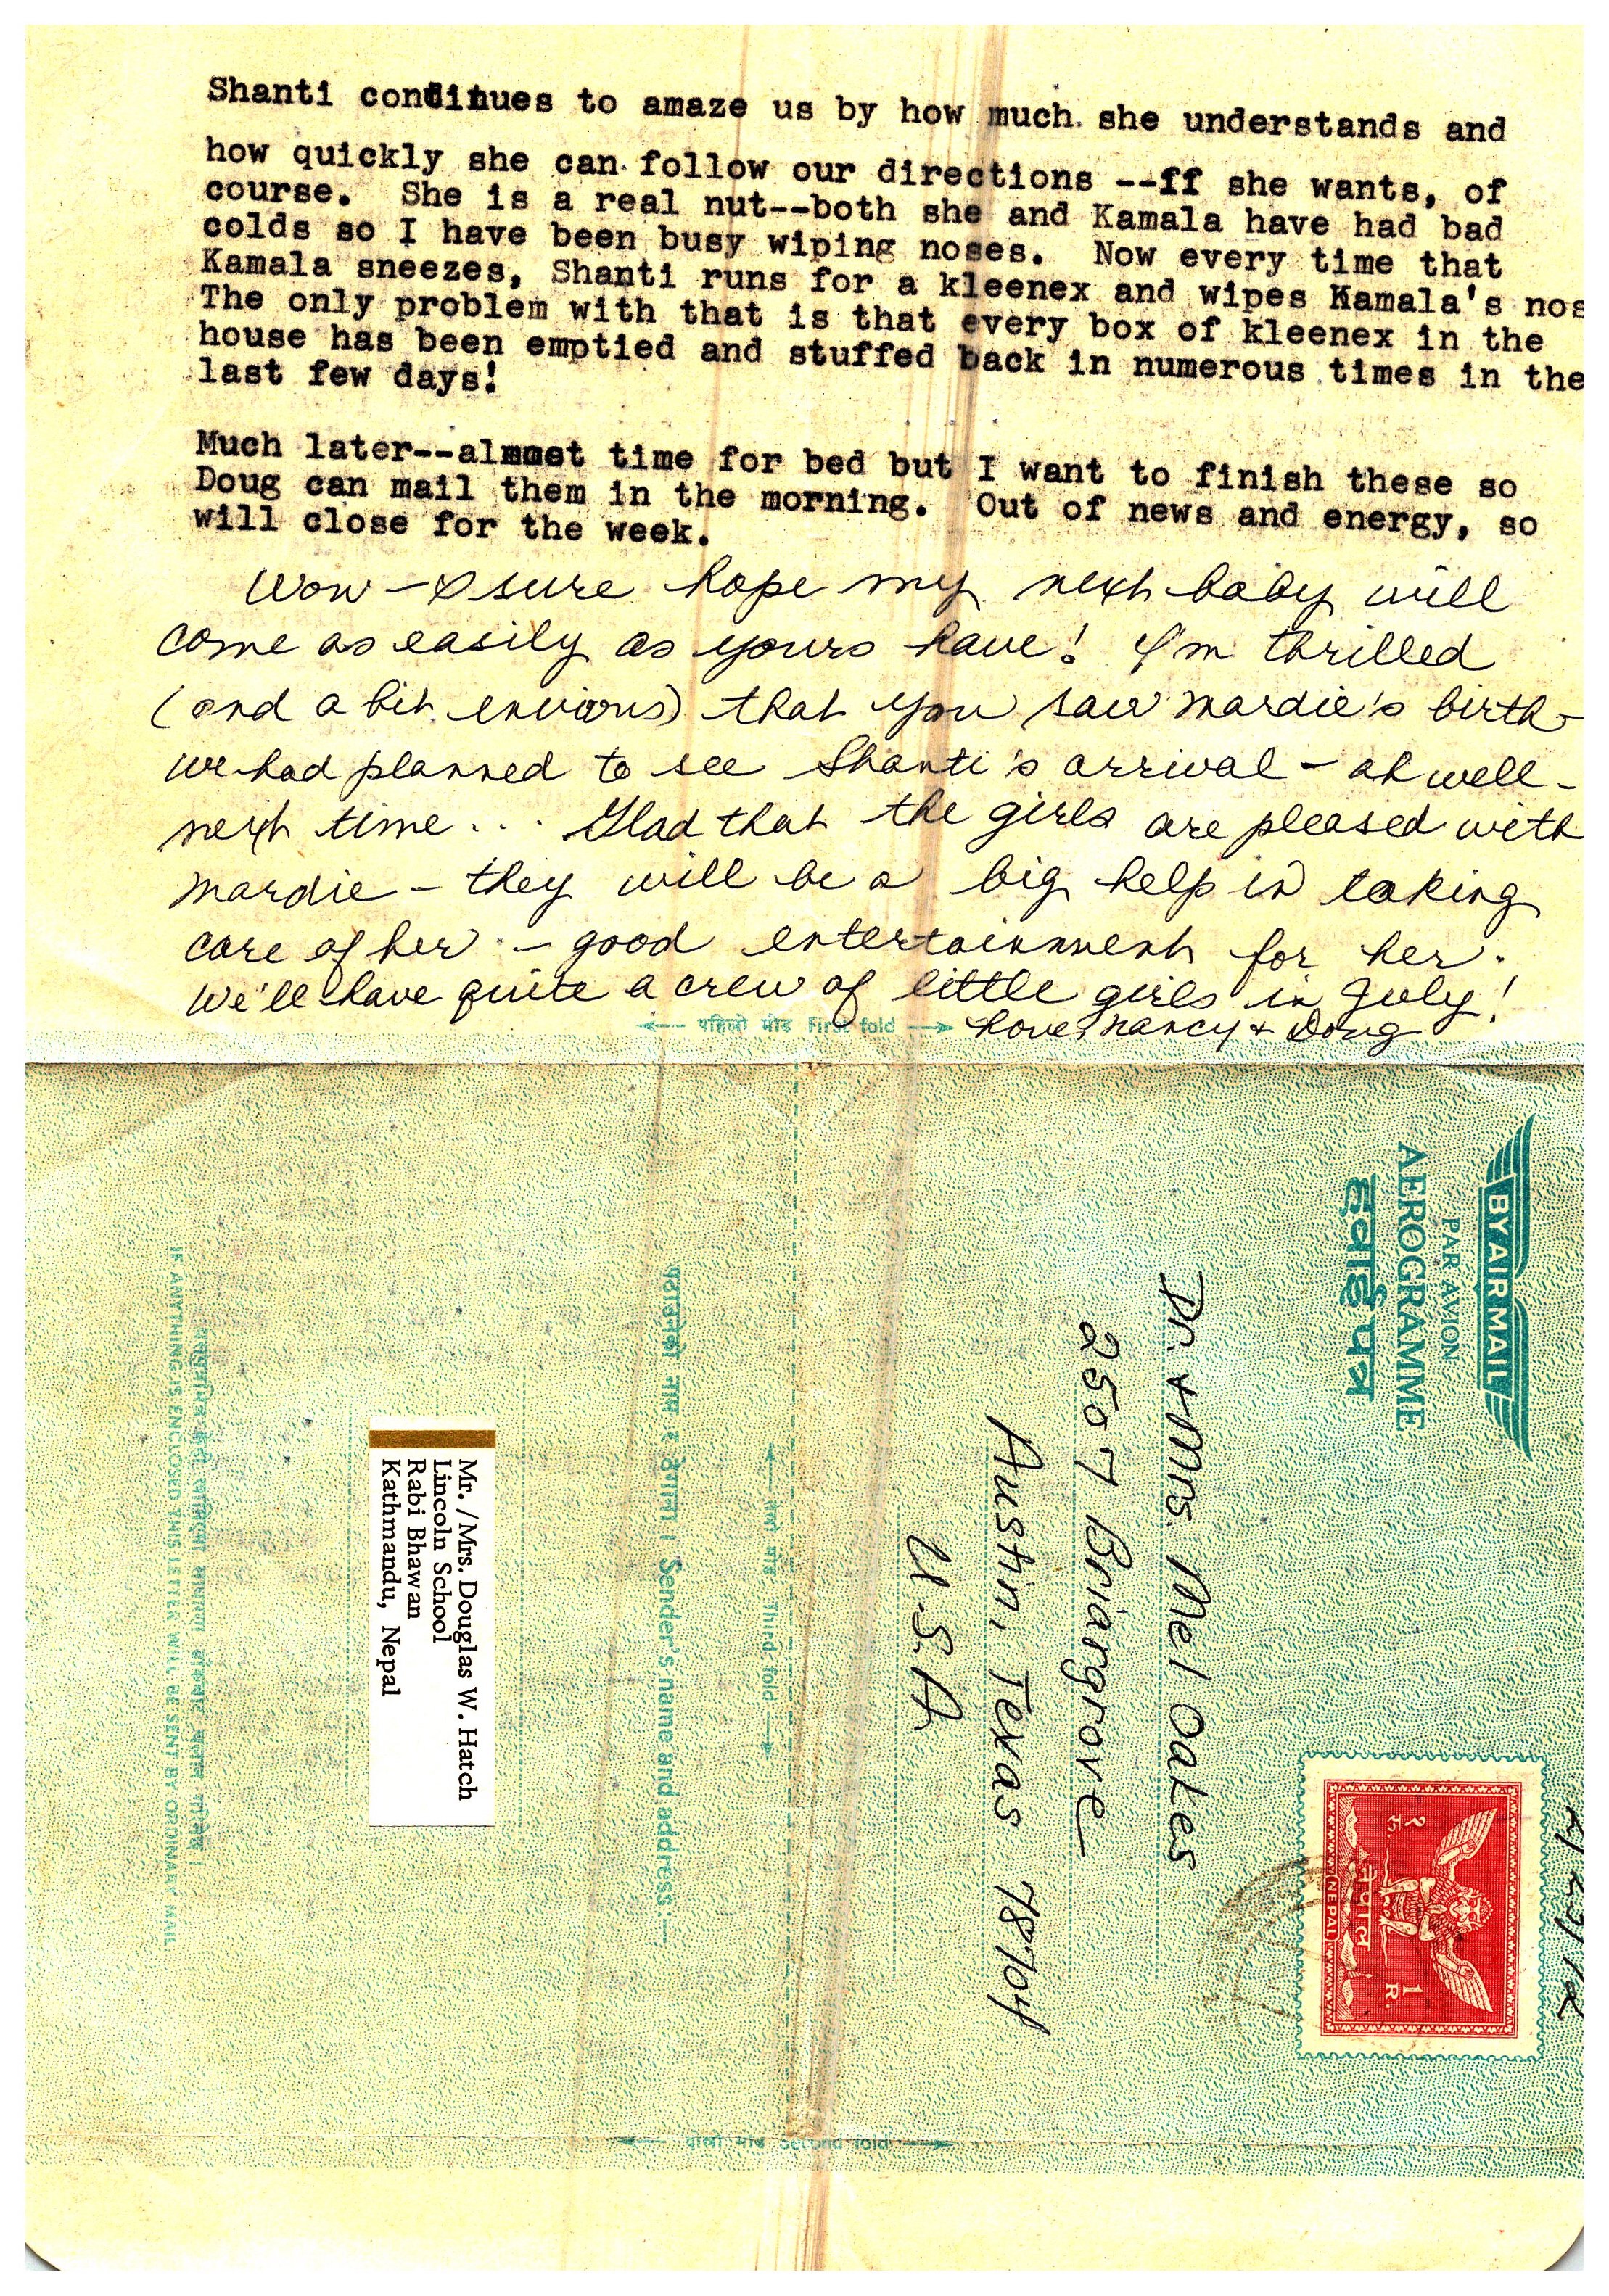 Shanti continues to amaze us by how much she understands and
how quickly she can follow our directions --ff she wants, of
course. She is a real nut--both she and Kamala have had bad
colds so I have been busy wiping noses. Now every time that
Kamala sneezes, Shanti runs for a kleenex and wipes Kamala's nos
The only problem with that is that every box of kleenex in the
house has been emptied and stuffed back in numerous times in the
last few days!
Much later--almost time for bed but I want to finish these so
Doug can mail them in the morning. Out of news and energy, so
will close for the week.
Wow - I sure hope my next baby will
come as easily as yours have! I'm thrilled
(and a bit envious) that you saw Mardie's birth -
we had planned to see Shanti's arrival - ah well -
next time... Glad that the girls are pleased with
Mardie - they will be a big help in taking
care of her - good entertainment for her.
We'll have quite a crew of little girls in July!
Love, Nancy & Doug
पहिलो मोड First fold
BY AIR MAIL
PAR AVION
AEROGRAMME
हवाई पत्र
Dr. & Mrs. Mel Oakes
2507 Briargrove
Austin, Texas 78704
U.S.A.
नेपाल
NEPAL
१ रु.
1 R.
तेस्रो मोड Third fold
पठाउनेको नाम र ठेगाना । Sender's name and address
Mr. /Mrs. Douglas W. Hatch
Lincoln School
Rabi Bhawan
Kathmandu, Nepal
IF ANYTHING IS ENCLOSED THIS LETTER WILL BE SENT BY ORDINARY MAIL
दोस्रो मोड Second fold